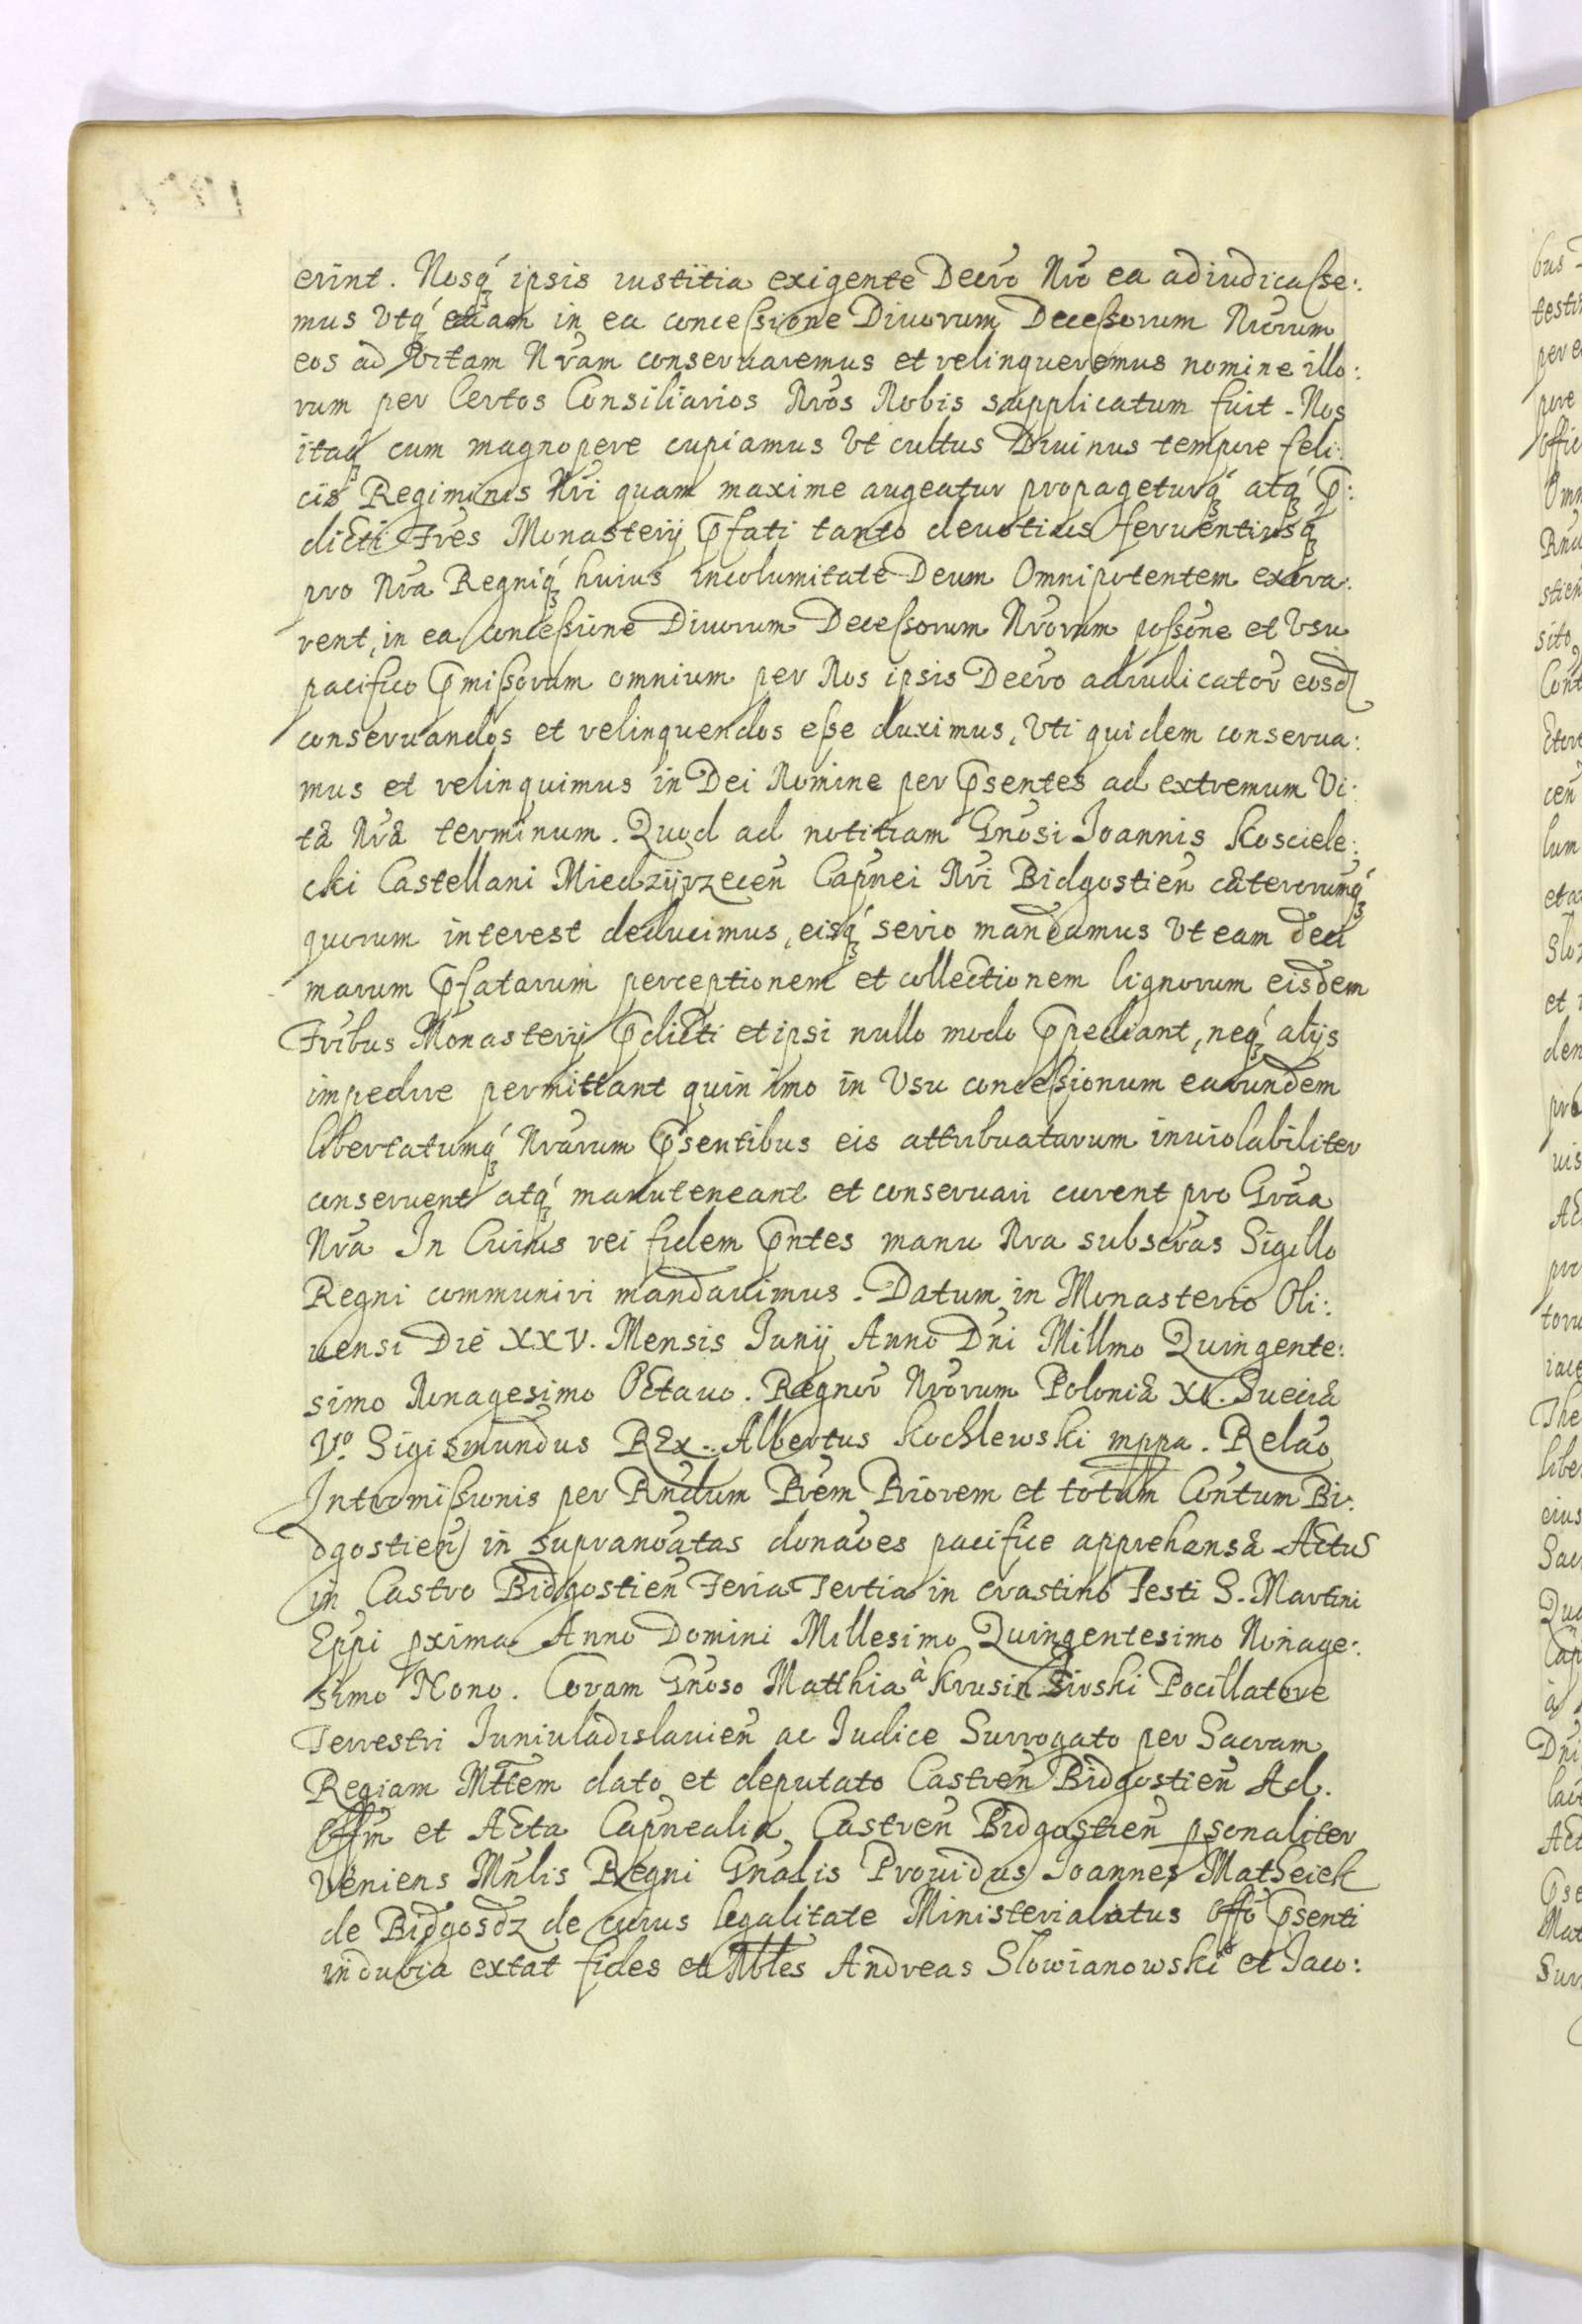 erint. Nosq́ꝫ ipsis iustitia exigente Decrõ Nrõ ea adiudicasse:
mus Vtq́ꝫ etiam in ea concessione Diuorum Decessorum Nrorum
eos ad Vitam Nram conseruaremus et relinqueremus nomine illo:
rum per Certos Consiliarios Nros Nobis supplicatum fuit. Nos
itaqꝫ cum magnopere cupiamus Vt cultus Diuinus tempore feli:
cis Regiminis Nri quam maxime augeatur propageturq́ꝫ atq́ꝫ p̃:
dicti Fres Monasterij p̃fati tanto deuotius feruentiusq́ꝫ
pro Nra Regniq́ꝫ huius incolumitate Deum Omnipotentem exora:
rent, in ea concessione Diuorum Decessorum Nrorum possone et Vsu
pacifico p̃missorum omnium per Nos ipsis Decro adiudicator̃ eosd
conseruandos et relinquendos esse duximus, Vti quidem conserua:
mus et relinquimus in Dei Nomine per p̃sentes ad extremum Vi:
tæ Nræ terminum. Quod ad notitiam Gnosi Joannis Kosciele:
cki Castellani Miedzijrzecen̄ Capnei Nri Bidgostien̄ cæterorumq́ꝫ
quorum interest deducimus, eisq́ꝫ serio mandamus Vt eam deci
marum p̃fatarum perceptionem et collectionem lignorum eisdem
Fribus Monasterij p̃dicti et ipsi nullo modo p̃pediant, neq́ꝫ alijs
impedire permittant quin imo in Vsu concessionum earundem
libertatumq́ꝫ Nrarum p̃sentibus eis attributarum inuiolabiliter
conseruent atq́ꝫ manuteneant et conseruari curent pro Grãa
Nra In Cuius rei fidem p̃ntes manu Nra subscrãs Sigillo
Regni communiri mandauimus. Datum in Monasterio Oli:
uensi Die XXV. Mensis Junij Anno Dn̄i Millmo Quingente:
simo Nonagesimo Octauo. Regnor̃ Nrorum Poloniæ XI. Sueciæ
Vº. Sigismundus REx.. Albertus Kochlewski mppa. Relão
Intromissionis per Rndum Prem Priorem et totum Contum Bi:
dgostien̄ in supranoatas donaões pacifice apprehensæ Actus
in Castro Bidgostien̄ Feria Tertia in crastino Festi S. Martini
Eppi pxima Anno Domini Millesimo Quingentesimo Nonage:
simo Nono. Coram Gnoso Matthia à Krusin Siroski Pocillatore
Terrestri Juniuladislauien̄ ac Judice Surrogato per Sacram
Regiam Mttem dato et deputato Castren̄ Bidgostien̄ Ad.
Offm et Acta Capnealia Castren̄ Bidgostien̄ psonaliter
Veniens Mnlis Regni Gnalis Prouidus Joannes Matheiek
de Bidgosdz de cuius legalitate Ministerialatus Offo p̃senti
indubia extat fides et Nbles Andreas Slowianowski et Jaco: